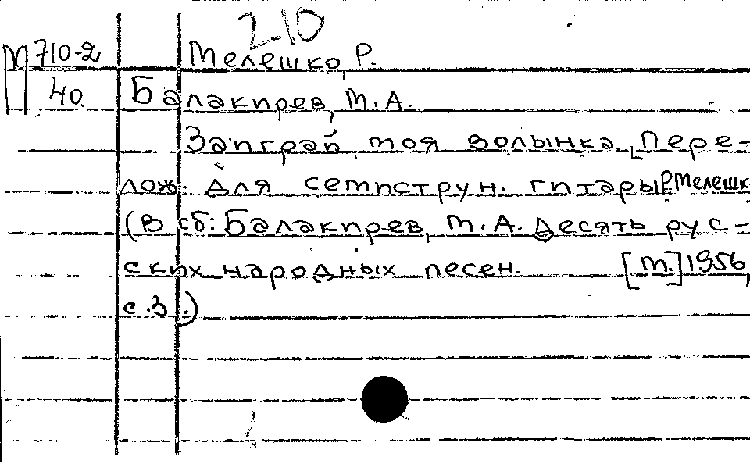 2-10
М 710-2 Мелешко, Р.
40 Балакирев, М.А.
Заиграй, моя волынка. [Пере-
лож. для семиструн. гитары Р. Мелешк
(В сб: Балакирев, М.А. Десять рус-
ских народных песен. [М.] 1956,
с.3.)